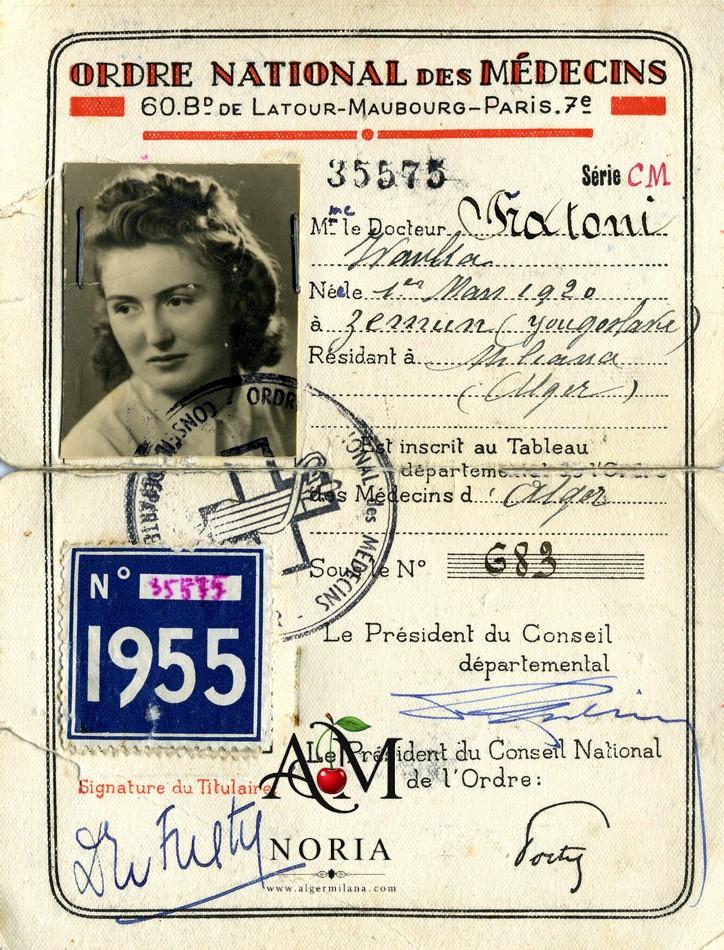 ORDRE NATIONAL DES MÉDECINS
60.Bᴰ DE LATOUR-MAUBOURG-PARIS.7ᵉ
35575 Série CM
Mme le Docteur
Née le 1er Mars 1920
à Zemun (Yougoslavie)
Résidant à Miliana
(Alger)
Est inscrit au Tableau
départemental de l'Ordre
des Médecins d'Alger
Sous le N° 683
N° 35575
1955
Le Président du Conseil
départemental
Le Président du Conseil National
de l'Ordre:
Signature du Titulaire
AM
NORIA
www.algermilana.com
ORDRE
NATIONAL des MÉDECINS